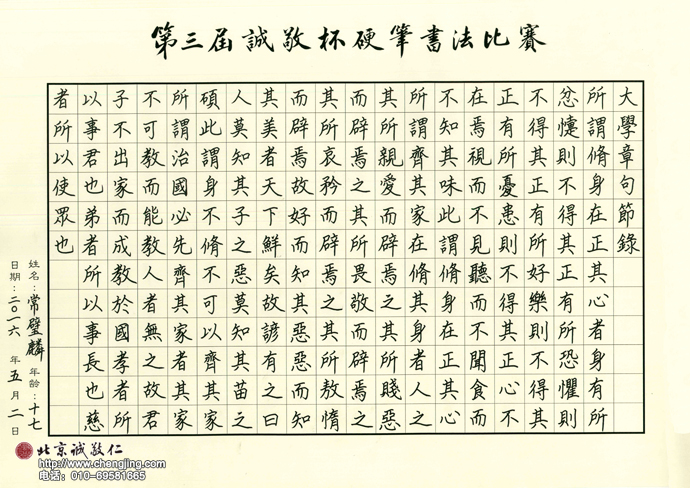 第三屆誠敬杯硬筆書法比賽
大學章句節錄
所謂脩身在正其心者身有所
忿懥則不得其正有所恐懼則
不得其正有所好樂則不得其
正有所憂患則不得其正心不
在焉視而不見聽而不聞食而
不知其味此謂脩身在正其心
所謂齊其家在脩其身者人之
其所親愛而辟焉之其所賤惡
而辟焉之其所畏敬而辟焉之
其所哀矜而辟焉之其所敖惰
而辟焉故好而知其惡惡而知
其美者天下鮮矣故諺有之曰
人莫知其子之惡莫知其苗之
碩此謂身不脩不可以齊其家
所謂治國必先齊其家者其家
不可教而能教人者無之故君
子不出家而成教於國孝者所
以事君也弟者所以事長也慈
者所以使眾也
姓名：常璧麟 年齡：十七
日期：二〇一六 年五月二日
北京誠敬仁
http://www.chongjing.com
电话：010-69581665